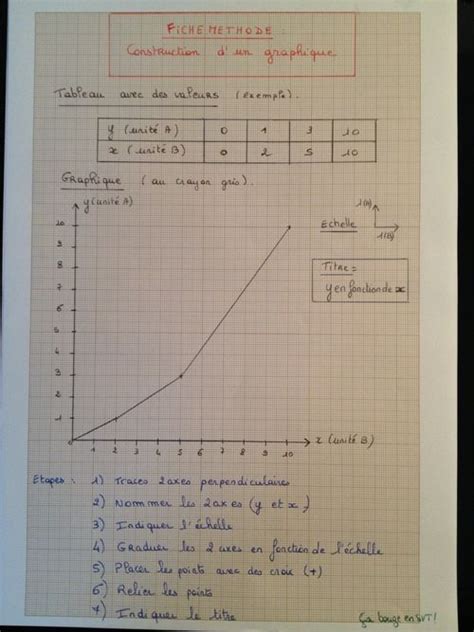 FICHE METHODE :
Construction d'un graphique
Tableau avec des valeurs (exemple).
y (unité A) 0 1 3 10
x (unité B) 0 2 5 10
GRAPHIQUE (au crayon gris).
y (unité A)
1(A)
Echelle
1(B)
Titre =
y en fonction de x
10
9
8
7
6
5
4
3
2
1
0
1 2 3 4 5 6 7 8 9 10
x (unité B)
Etapes : 1) Traces 2 axes perpendiculaires
2) Nommer les 2 axes (y et x)
3) Indiquer l'échelle
4) Graduer les 2 axes en fonction de l'échelle
5) Placer les points avec des croix (+)
6) Relier les points
7) Indiquer le titre
Ça bouge en SVT!